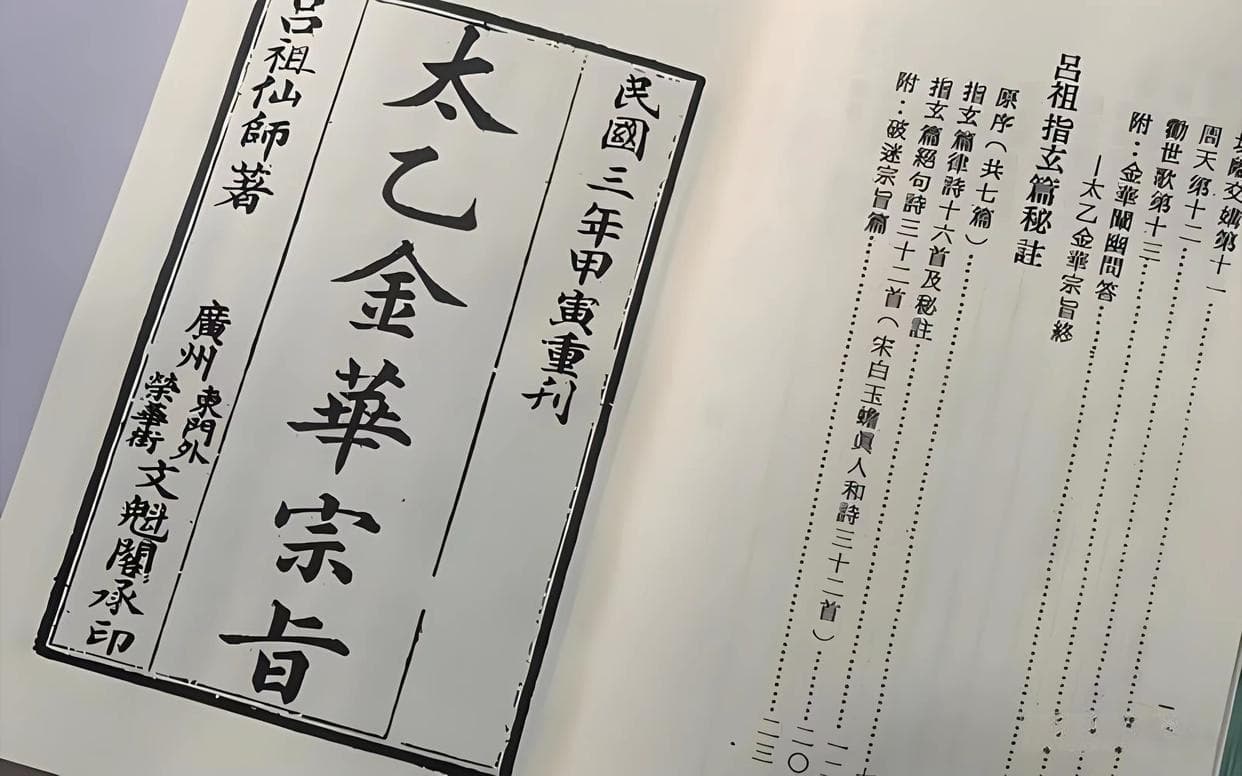 坎離交媾第十一
周天第十二
勸世歌第十三
附：金華闡幽問答
—太乙金華宗旨終
呂祖指玄篇秘註
原序（共七篇）
指玄篇律詩十六首及秘註
指玄篇絕句詩三十二首（宋白玉蟾眞人和詩三十二首）
附：破迷宗旨篇
民國三年甲寅重刊
太乙金華宗旨
呂祖仙師著
廣州東門外榮華街文魁閣承印